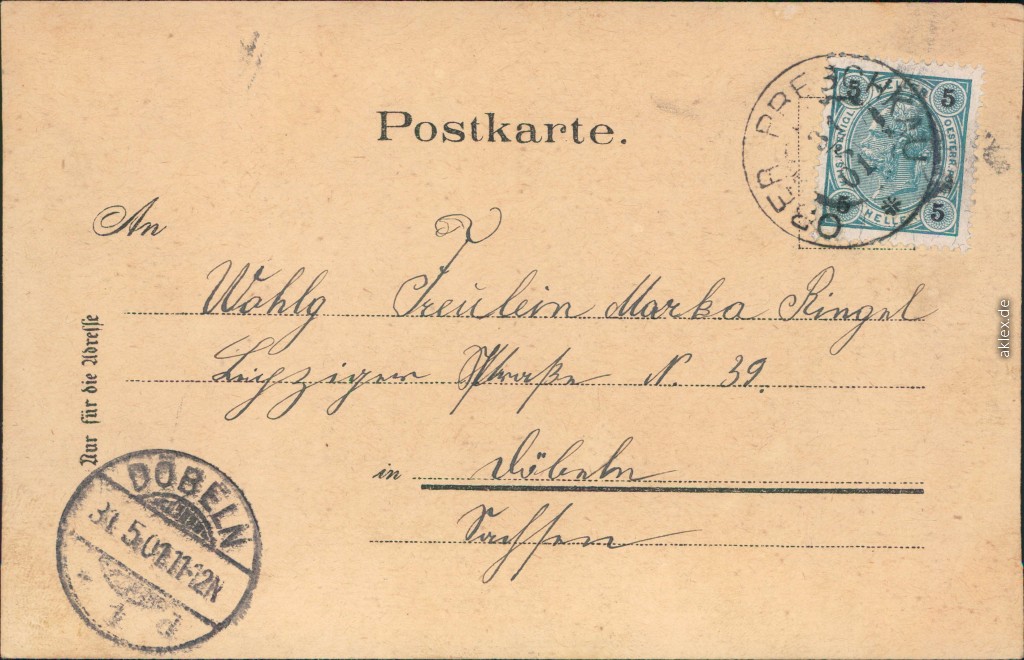 Postkarte.
OBER PRESCHKAU
5 5
5 HELLER 5
An
Wohlg Freulein Marka Ringel
Leipziger Straße N. 39.
in Döbeln
Sachsen
Nur für die Adresse
DÖBELN
31.5.01.11-12N
1 d
aklex.de